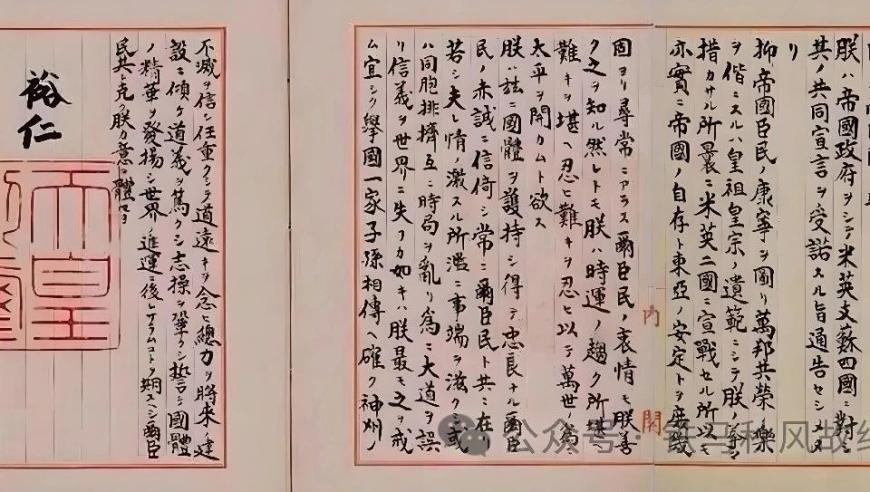 朕ハ帝國政府ヲシテ米英支蘇四國ニ對シ
其ノ共同宣言ヲ受諾スル旨通告セシメタ
リ
抑帝國臣民ノ康寧ヲ圖リ萬邦共榮ノ樂
ヲ偕ニスルハ皇祖皇宗ノ遺範ニシテ朕ノ拳々
措カサル所曩ニ米英二國ニ宣戰セル所以モ
亦實ニ帝國ノ自存ト東亞ノ安定トヲ庶幾
内閣
固ヨリ尋常ニアラス爾臣民ノ衷情モ朕善
ク之ヲ知ル然レトモ朕ハ時運ノ趨ク所堪ヘ
難キヲ堪ヘ忍ヒ難キヲ忍ヒ以テ萬世ノ爲ニ
太平ヲ開カムト欲ス
朕ハ茲ニ國體ヲ護持シ得テ忠良ナル爾臣
民ノ赤誠ニ信倚シ常ニ爾臣民ト共ニ在リ
若シ夫レ情ノ激スル所濫ニ事端ヲ滋クシ或
ハ同胞排擠互ニ時局ヲ亂リ爲ニ大道ヲ誤
リ信義ヲ世界ニ失フカ如キハ朕最モ之ヲ戒
ム宜シク擧國一家子孫相傳ヘ確ク神州ノ
不滅ヲ信シ任重クシテ道遠キヲ念ヒ總力ヲ將來ノ建
設ニ傾ケ道義ヲ篤クシ志操ヲ鞏クシ誓テ國體
ノ精華ヲ發揚シ世界ノ進運ニ後レサラムコトヲ期スヘシ爾臣
民其レ克ク朕カ意ヲ體セヨ
裕仁
天皇
公众号